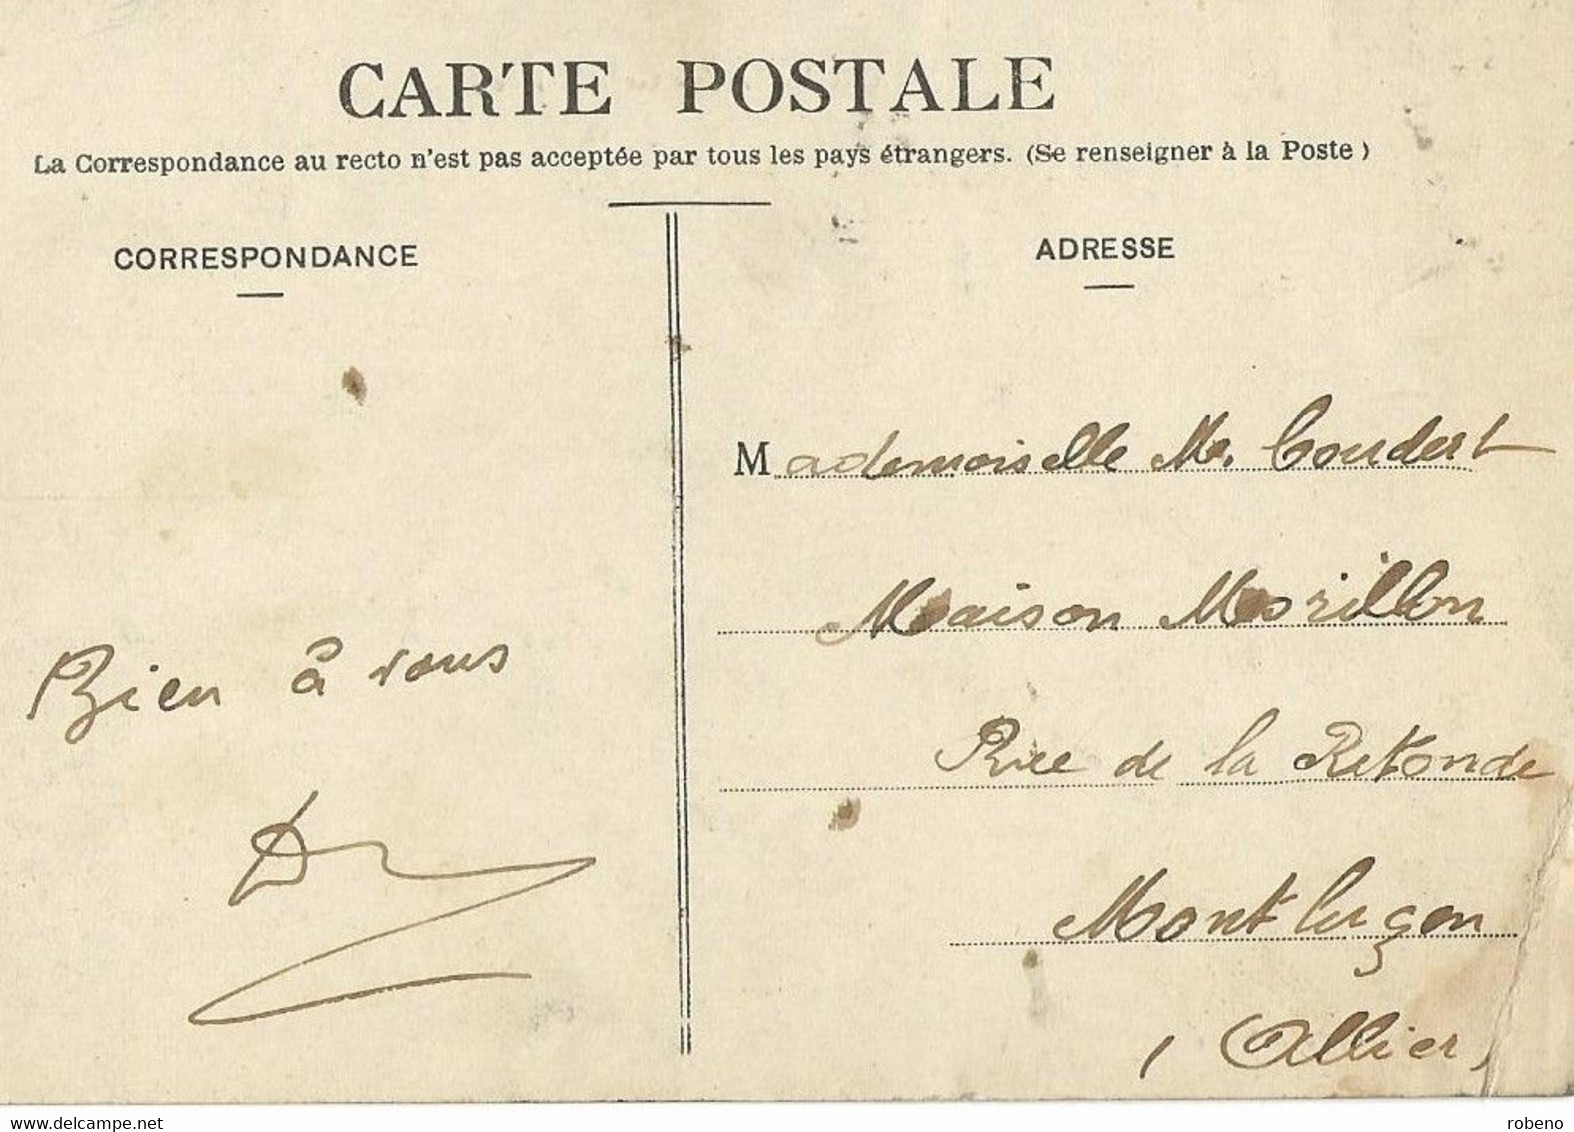 CARTE POSTALE
La Correspondance au recto n'est pas acceptée par tous les pays étrangers. (Se renseigner à la Poste)
CORRESPONDANCE
Bien à vous
ADRESSE
Mademoiselle M. Coudert
Maison Morillon
Rue de la Retonde
Montluçon
(Allier)
robeno